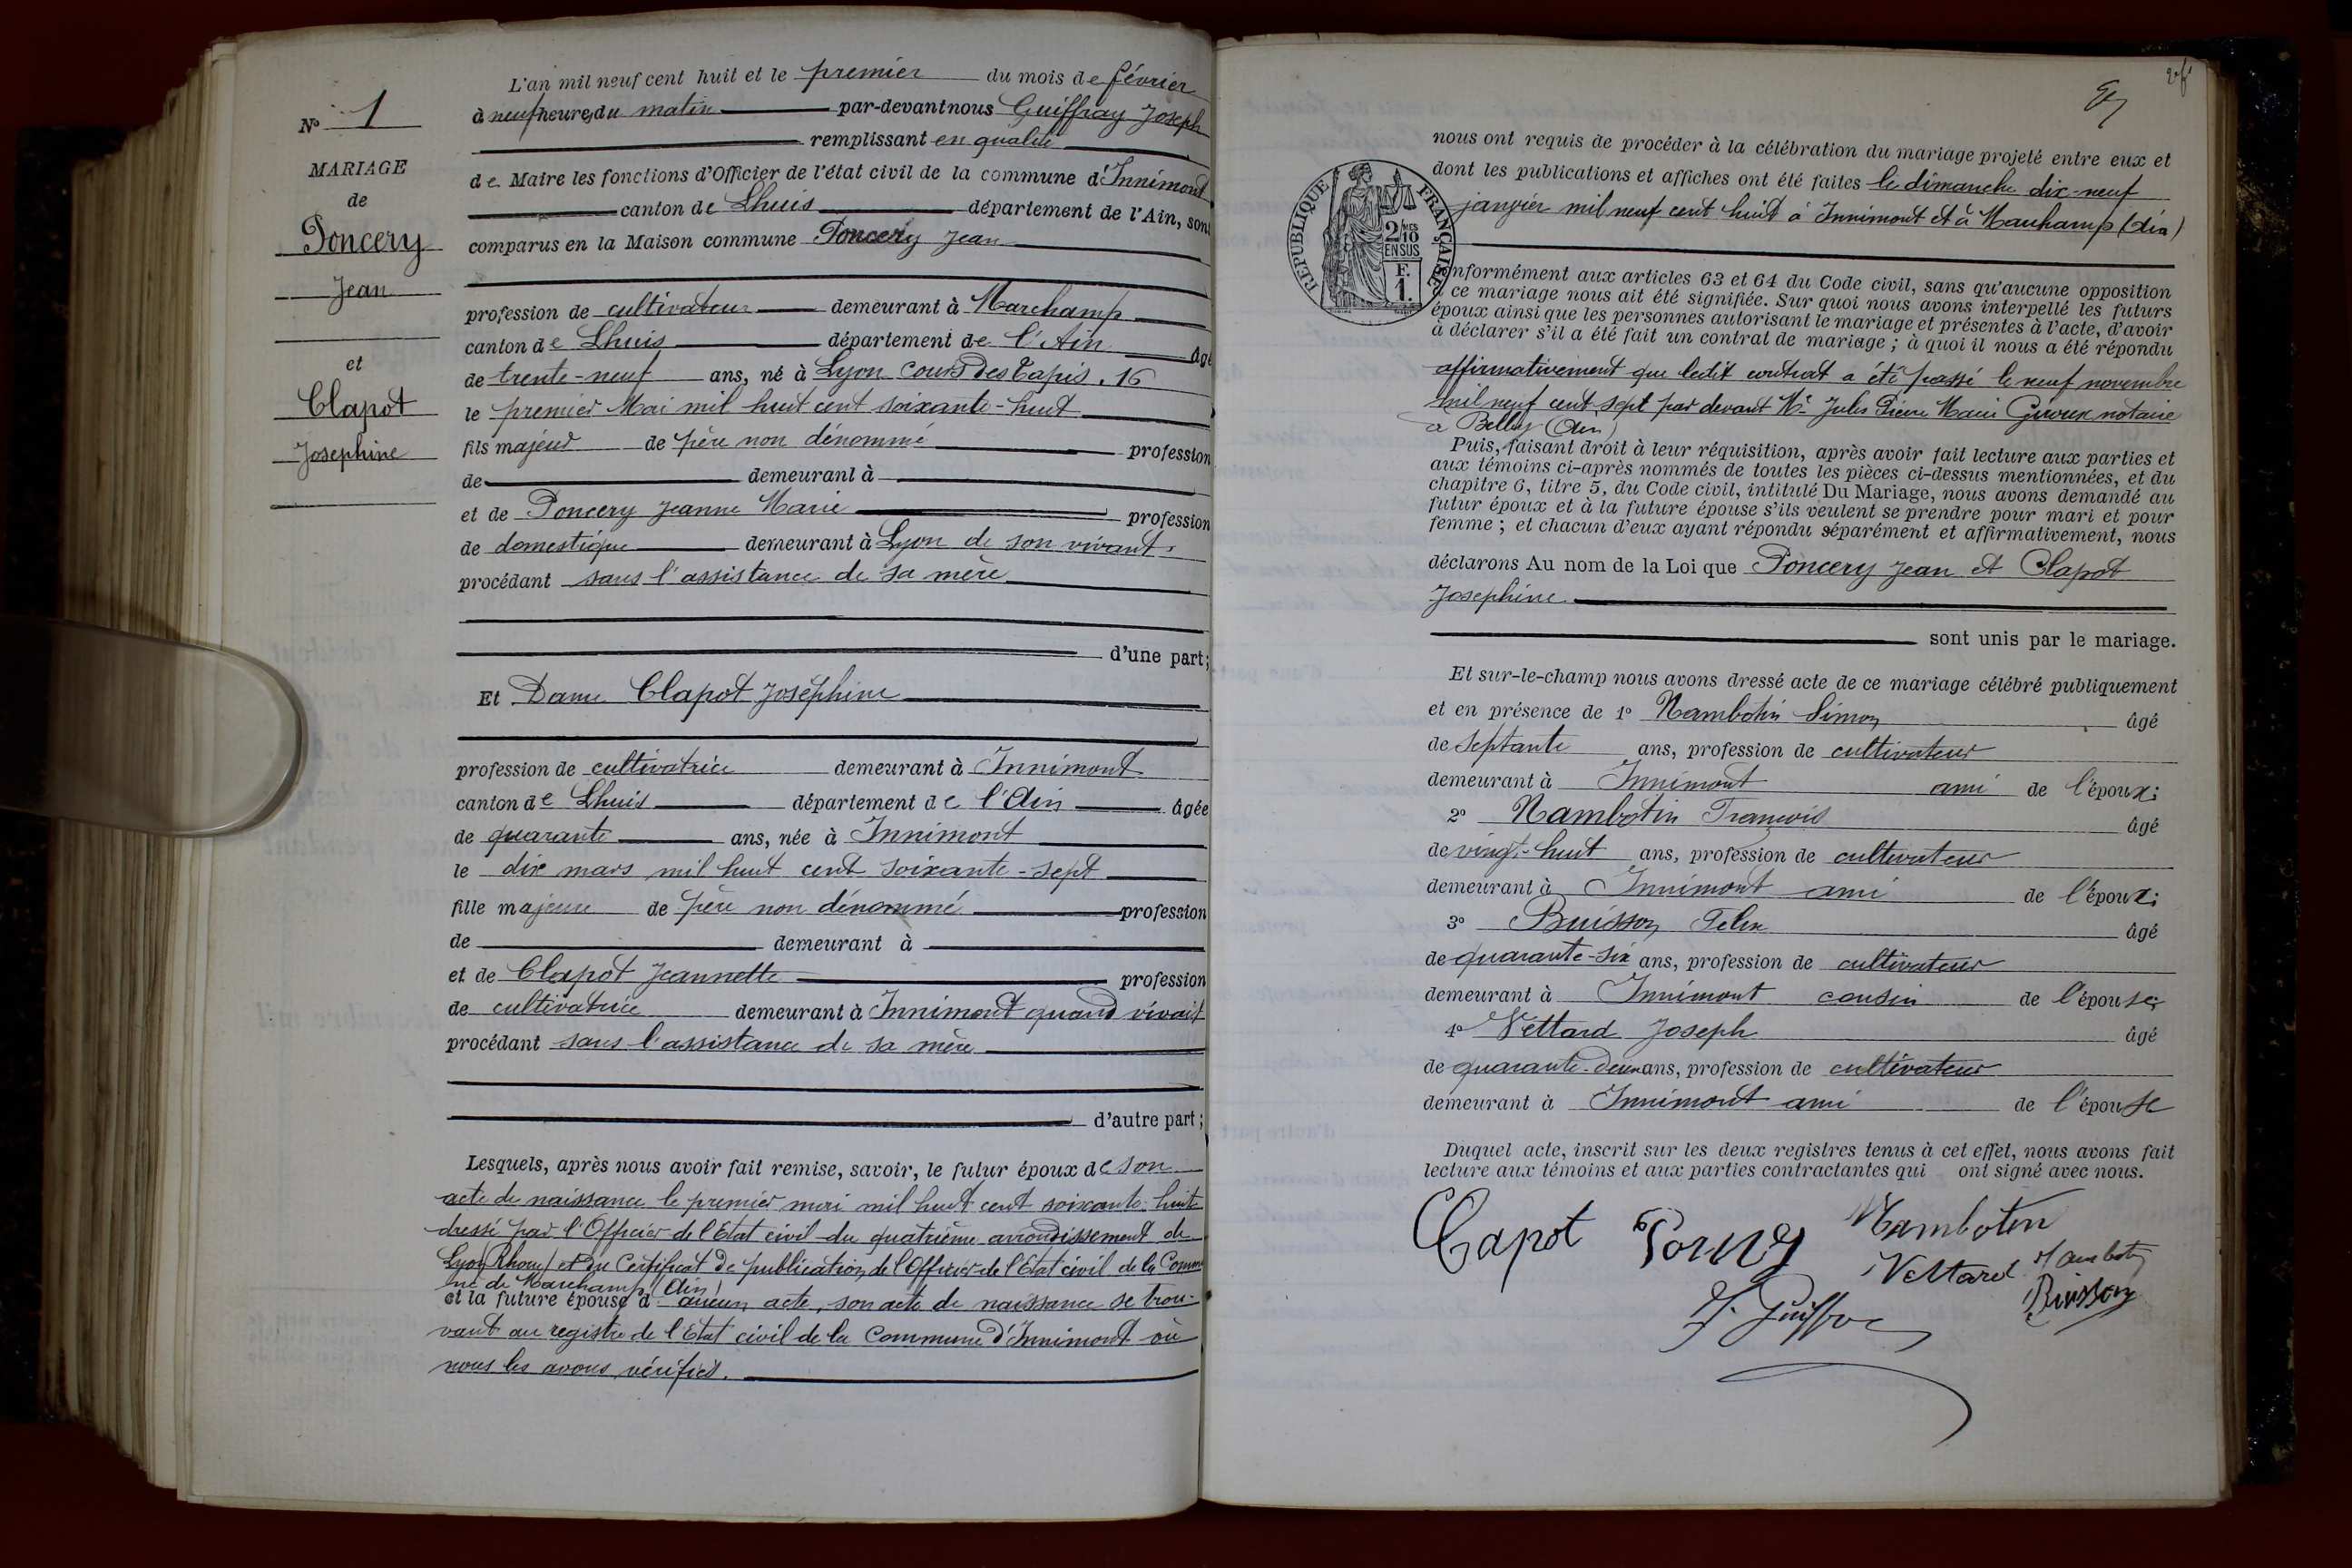 L'an mil neuf cent huit et le premier du mois de février
N° 1
à neuf heures du matin par-devant nous Guiffray Joseph
remplissant en qualité
MARIAGE
de Maire les fonctions d'Officier de l'état civil de la commune d'Innimont
de
canton de Lhuis département de l'Ain, sont
Poncery
comparus en la Maison commune Poncery Jean
Jean
profession de cultivateur demeurant à Marchamp
canton de Lhuis département de l'Ain âgé
et
de trente-neuf ans, né à Lyon cours des Tapis, 16
Clapot
le premier Mai mil huit cent soixante-huit
Josephine
fils majeur de père non dénommé profession
de demeurant à
et de Poncery Jeanne Marie profession
de domestique demeurant à Lyon de son vivant.
procédant sans l'assistance de sa mère
d'une part;
Et Dame Clapot Joséphine
profession de cultivatrice demeurant à Innimont
canton de Lhuis département de l'Ain âgée
de quarante ans, née à Innimont
le dix mars mil huit cent soixante-sept
fille majeure de père non dénommé profession
de demeurant à
et de Clapot Jeannette profession
de cultivatrice demeurant à Innimont quand vivait
procédant sans l'assistance de sa mère
d'autre part;
Lesquels, après nous avoir fait remise, savoir, le futur époux de son
acte de naissance le premier mai mil huit cent soixante-huit
dressé par l'Officier de l'Etat civil du quatrième arrondissement de
Lyon (Rhône) et du Certificat de publication de l'Officier de l'Etat civil de la Commu
ne de Marchamp (Ain)
et la future épouse d'aucun acte, son acte de naissance se trou-
vant au registre de l'Etat civil de la Commune d'Innimont où
nous les avons vérifiés.
nous ont requis de procéder à la célébration du mariage projeté entre eux et
dont les publications et affiches ont été faites le dimanche dix-neuf
janvier mil neuf cent huit à Innimont et à Marchamp (Ain)
RÉPUBLIQUE FRANÇAISE
2/10 MES
EN SUS
F.
1.
conformément aux articles 63 et 64 du Code civil, sans qu'aucune opposition
à ce mariage nous ait été signifiée. Sur quoi nous avons interpellé les futurs
époux ainsi que les personnes autorisant le mariage et présentes à l'acte, d'avoir
à déclarer s'il a été fait un contrat de mariage; à quoi il nous a été répondu
affirmativement que ledit contrat a été passé le neuf novembre
mil neuf cent sept par devant Me Jules Pierre Marie Giroux notaire
à Belley (Ain)
Puis, faisant droit à leur réquisition, après avoir fait lecture aux parties et
aux témoins ci-après nommés de toutes les pièces ci-dessus mentionnées, et du
chapitre 6, titre 5, du Code civil, intitulé Du Mariage, nous avons demandé au
futur époux et à la future épouse s'ils veulent se prendre pour mari et pour
femme; et chacun d'eux ayant répondu séparément et affirmativement, nous
déclarons Au nom de la Loi que Poncery Jean et Clapot
Josephine
sont unis par le mariage.
Et sur-le-champ nous avons dressé acte de ce mariage célébré publiquement
et en présence de 1° Nambotin Simon âgé
de septante ans, profession de cultivateur
demeurant à Innimont ami de l'époux;
2° Nambotin François âgé
de vingt-huit ans, profession de cultivateur
demeurant à Innimont ami de l'époux;
3° Buisson Felix âgé
de quarante-six ans, profession de cultivateur
demeurant à Innimont cousin de l'épouse;
4° Vettard Joseph âgé
de quarante-deux ans, profession de cultivateur
demeurant à Innimont ami de l'épouse
Duquel acte, inscrit sur les deux registres tenus à cet effet, nous avons fait
lecture aux témoins et aux parties contractantes qui ont signé avec nous.
Clapot Poncery Nambotin
Vettard Nambotin
J. Guiffray Buisson